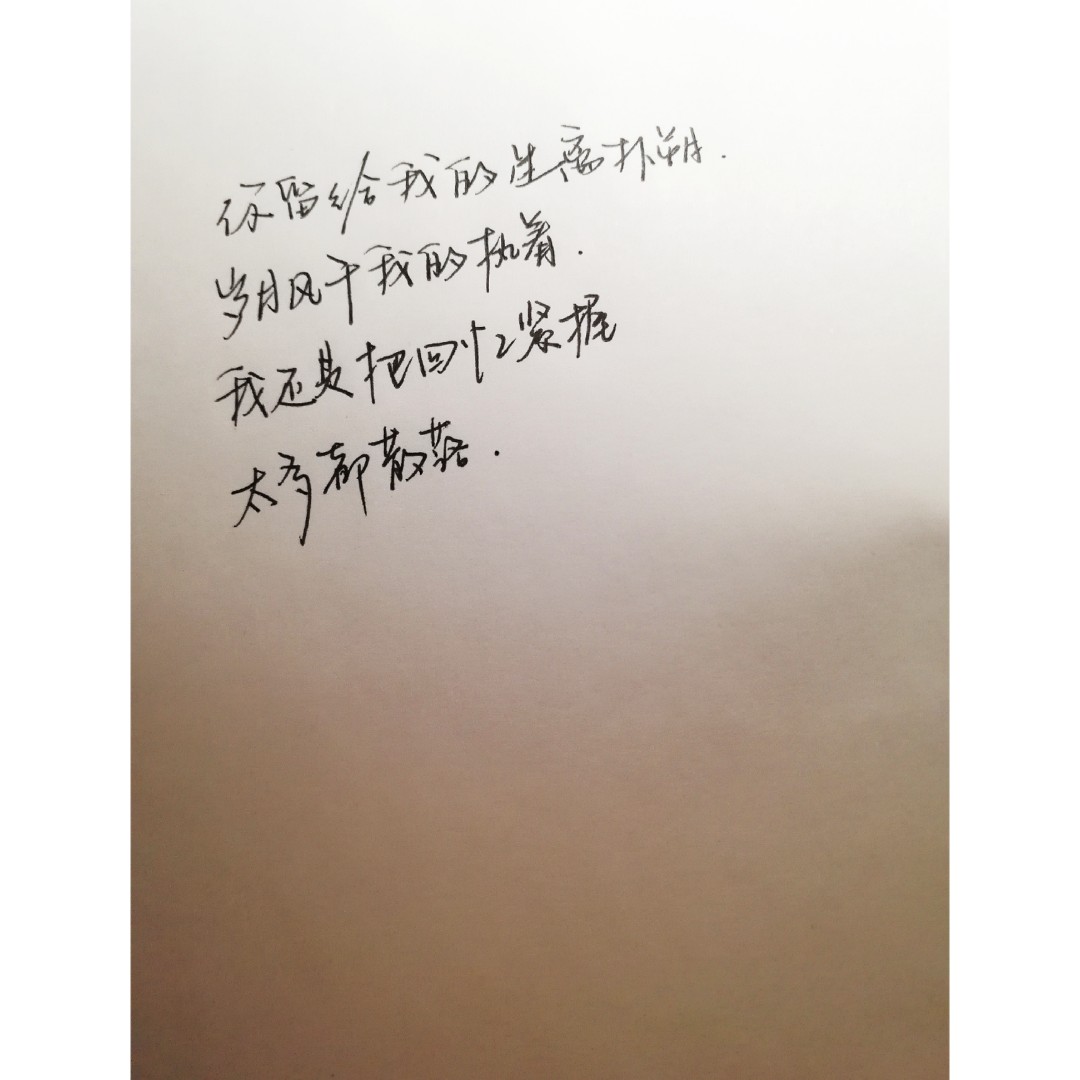 你留给我的生离扑朔.
岁月风干我的执着.
我还是把回忆紧握
太多都散落.